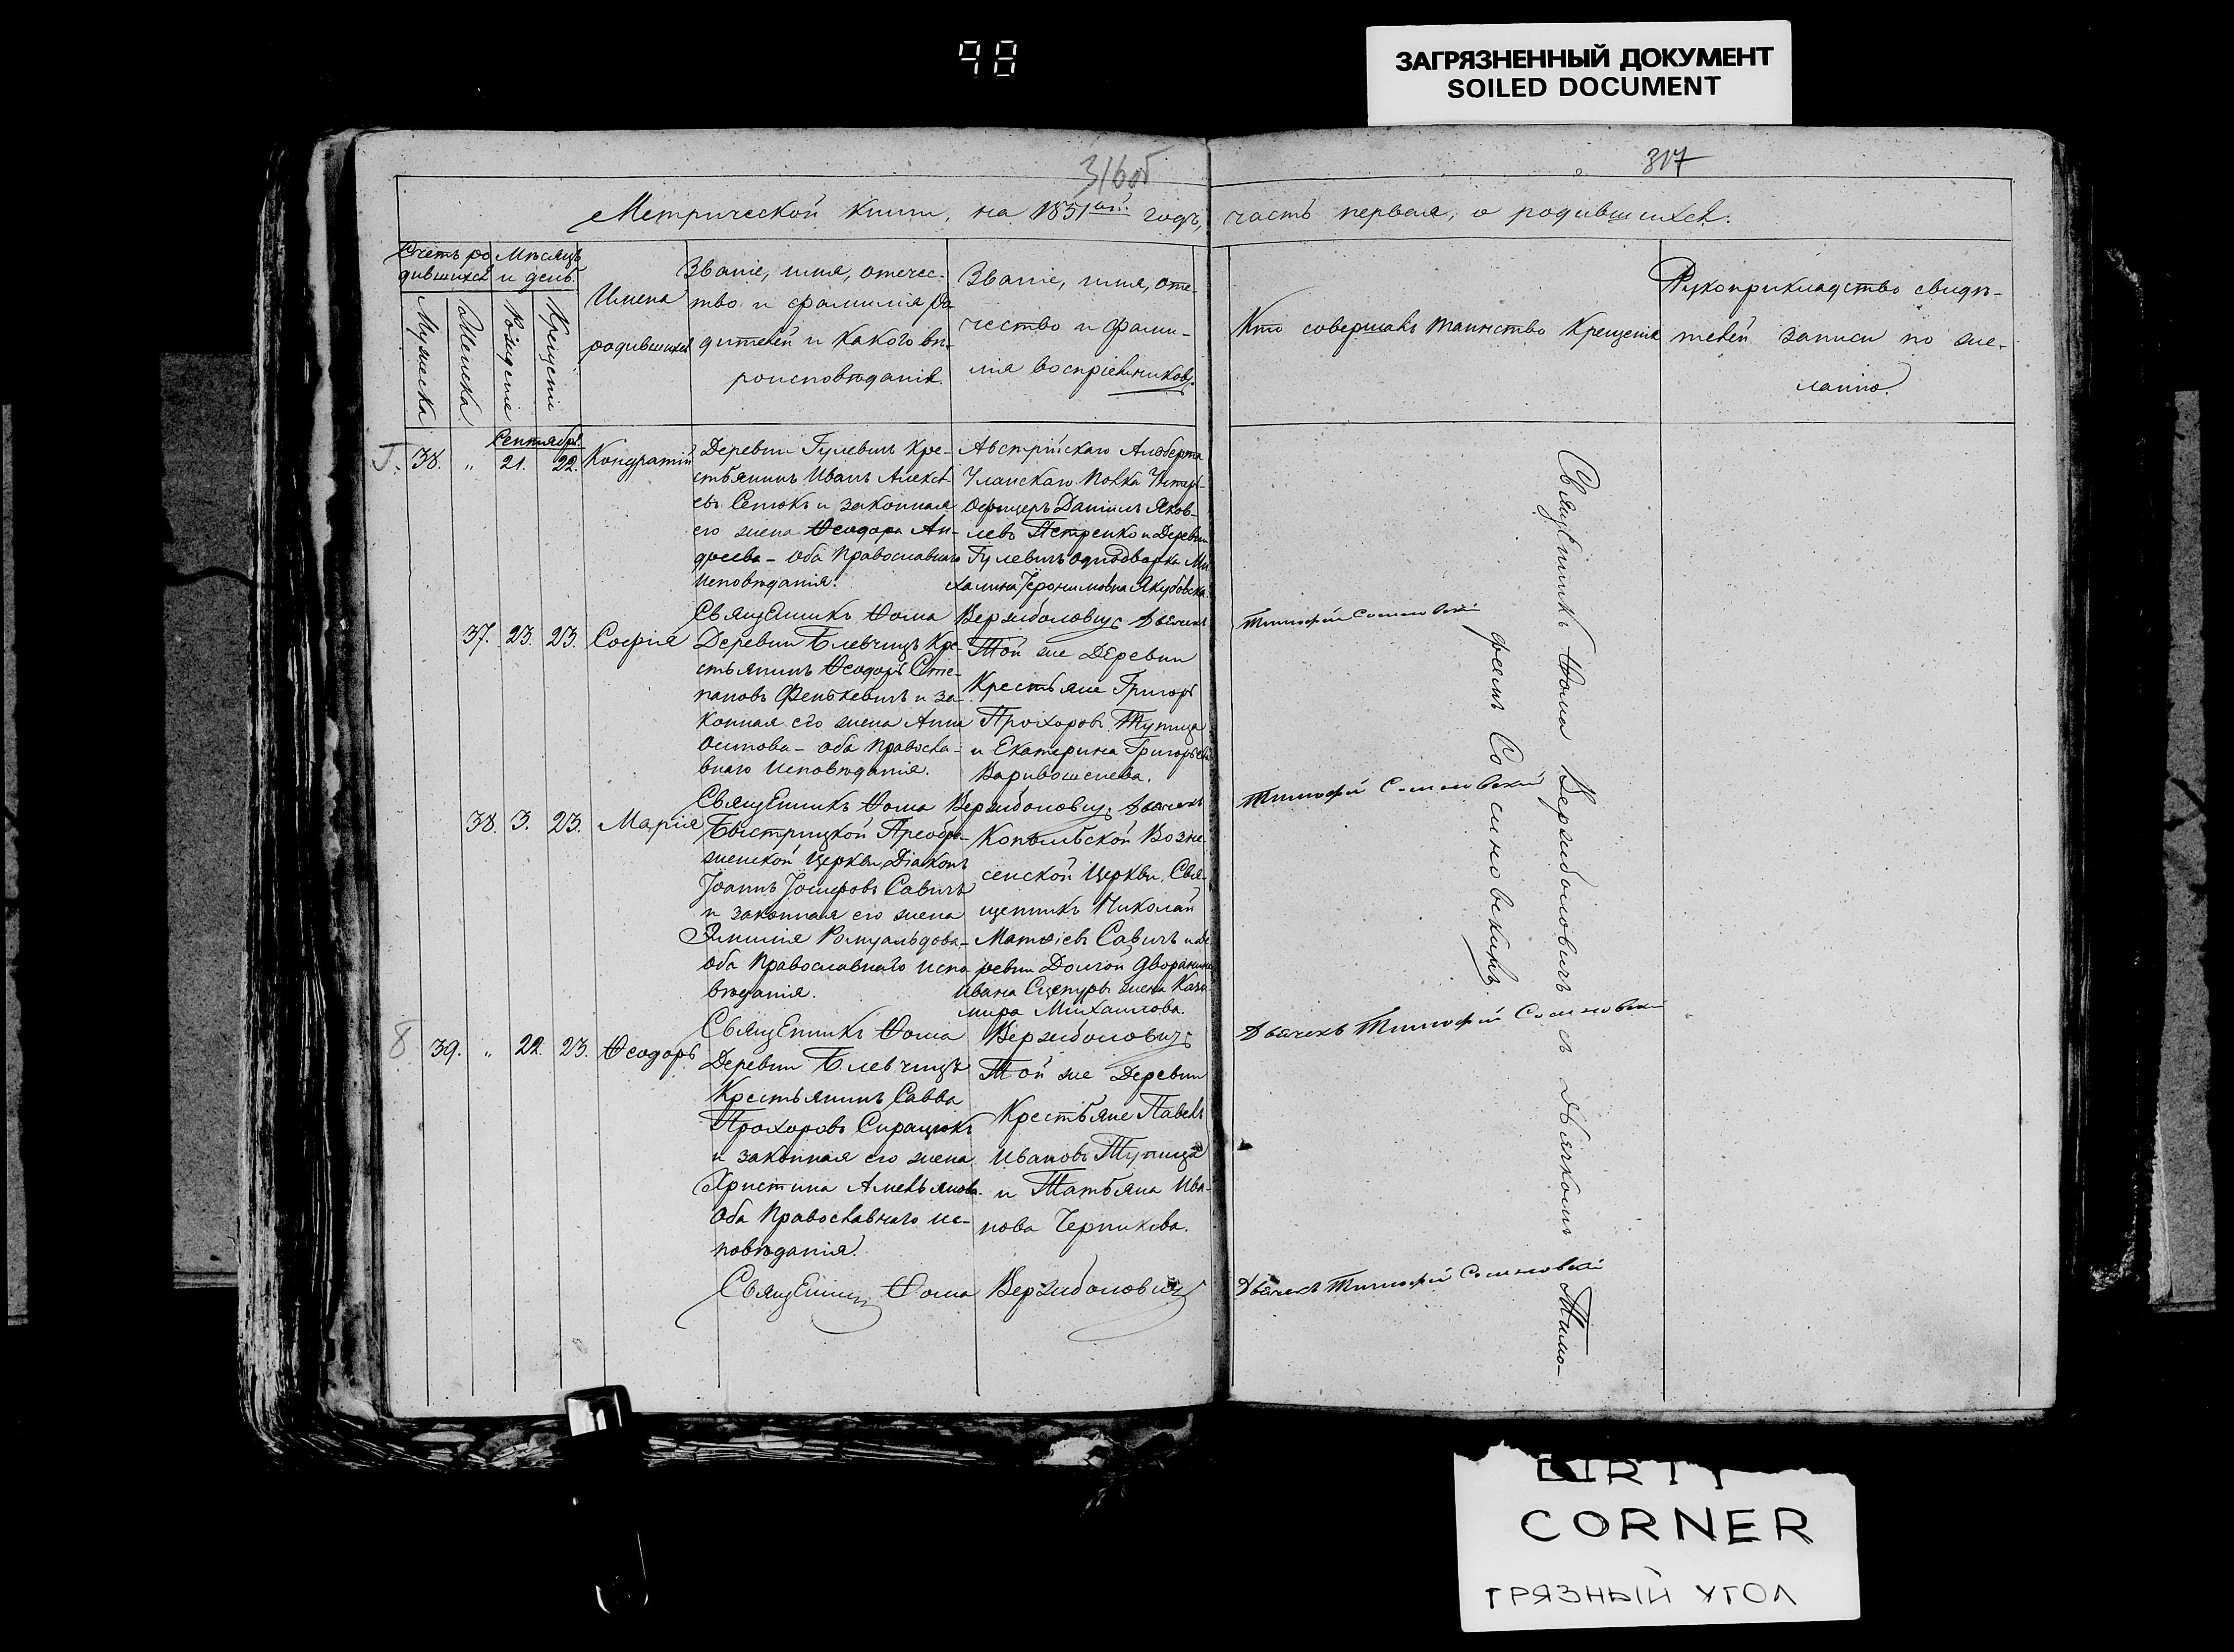 98
ЗАГРЯЗНЕННЫЙ ДОКУМЕНТ
SOILED DOCUMENT
316об
317
Метрической книги, на 1851ый годъ, часть первая, о родившихся.
Счетъ ро
дившихся
Мѣсяцъ
и день
Мужеска
Женска
Рожденія
Крещенія
Имена
родившихся
Званіе, имя, отечес-
тво и фамилія ро
дителей и какого вѣ-
роисповѣданія.
Званіе, имя, оте-
чество и фами-
лія воспріемниковъ.
Кто совершалъ таинство Крещенія
Рукоприкладство свидѣ-
телей записи по же-
ланію.
Сентябрь.
38. „ 21. 22. Кондратій
Деревни Гулевичъ Кре-
стьянинъ Иванъ Алексѣ-
евъ Сенюкъ и законная
его жена Ѳеодора Ан-
дреева – оба Православнаго
Исповѣданія.
Австрійскаго Альберта
Уланскаго Полка Унтеръ-
Офицеръ Даніилъ Яков-
левъ Петренко и Деревни
Гулевичъ однодворка Ми
халина Іеронимовна Якубовска.
Священникъ Ѳома Вержболовичъ Дьячекъ Тимофей Сосиновскій
37. 23. 23. Софія
Деревни Блевчицъ Кре-
стьянинъ Ѳеодоръ Сте-
пановъ Фенькевичъ и за-
конная его жена Анна
Осипова – оба Правосла-
внаго Исповѣданія.
Той же Деревни
Крестьяне Григорій
Прохоровъ Тупица
и Екатерина Григорьева
Варивошенева.
Священникъ Ѳома Вержболовичъ Дьячекъ Тимофей Сосиновскій
38. 3. 23. Марія
Быстрицкой Преобра-
женской Церкви Діаконъ
Іоаннъ Іосифовъ Савичъ
и законная его жена
Эмилія Ромуальдова –
оба Православнаго испо
вѣданія.
Копыльской Возне-
сенской Церкви Свя-
щенникъ Николай
Матѳіевъ Савичъ и Де
ревни Долгой дворянина
Ивана Сцепуры жена Кази
мира Михаилова.
Священникъ Ѳома Вержболовичъ Дьячекъ Тимофей Сосиновскій
8 39. „ 22. 23. Ѳеодоръ
Деревни Блевчицъ
Крестьянинъ Савва
Прохоровъ Сирацюкъ
и законная его жена
Христина Амельянова
Оба Православнаго ис-
повѣданія.
Той же Деревни
Крестьяне Павелъ
Ивановъ Тупица
и Татьяна Ива-
нова Черникова.
Священникъ Ѳома Вержболовичъ Дьячекъ Тимофей Сосиновскій
Священникъ Ѳома Вержболовичъ съ Дьячкомъ Тимо-
феемъ Сосиновскимъ.
DIRTY
CORNER
ГРЯЗНЫЙ УГОЛ